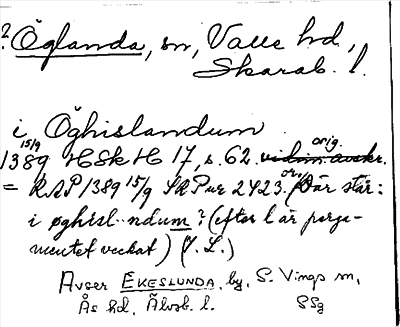 ? Öglanda, sn, Valle hd,
Skarab. l.
i Öghislandum
15/9 orig.
1389 HSkH 17, s. 62. vidim. avskr.
= RAP 1389 15/9 SRPur 2423. (Där står:
i øghisl..ndum? (efter l är perga-
mentet veckat) (I. L.)
Avser EKESLUNDA, by, S. Vings sn,
Ås hd, Älvsb. l. SSg